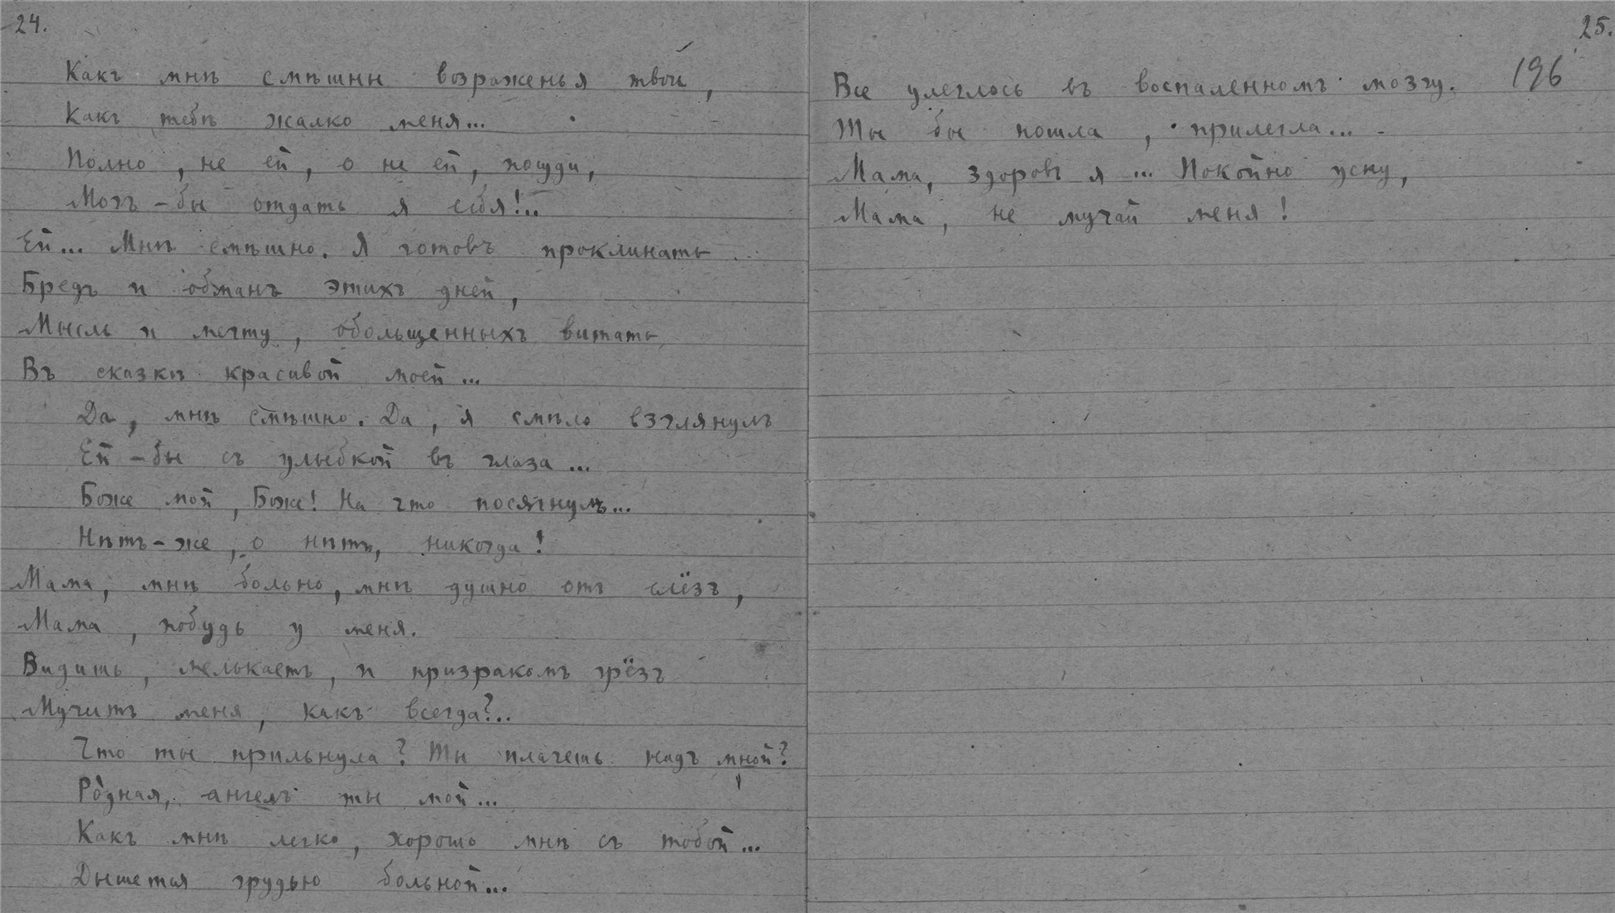 24.
Какъ мнѣ смѣшны возраженья твои,
Какъ тебѣ жалко меня...
Полно, не ей, о не ей, пощди,
Могъ-бы отдать я себя!..
Ей... Мнѣ смѣшно. Я готовъ проклинать
Бредъ и обманъ этихъ дней,
Мысль и мечту, обольщенныхъ витать
Въ сказкѣ красивой моей...
Да, мнѣ смѣшно. Да, я смѣло взглянулъ
Ей-бы съ улыбкой въ глаза...
Боже мой, Боже! На что посягнулъ...
Нѣтъ-же, о нѣтъ, никогда!
Мама, мнѣ больно, мнѣ душно отъ слёзъ,
Мама, побудь у меня.
Видишь, мелькаетъ, и призракомъ грёзъ
Мучитъ меня, какъ всегда?..
Что ты прильнула? Ты плачешь надъ мной?
Родная, ангелъ ты мой...
Какъ мнѣ легко, хорошо мнѣ съ тобой...
Дышется грудью больной...
25.
196
Все улеглось въ воспаленномъ мозгу.
Ты бы пошла, прилегла...
Мама, здоровъ я... Покойно усну,
Мама, не мучай меня!